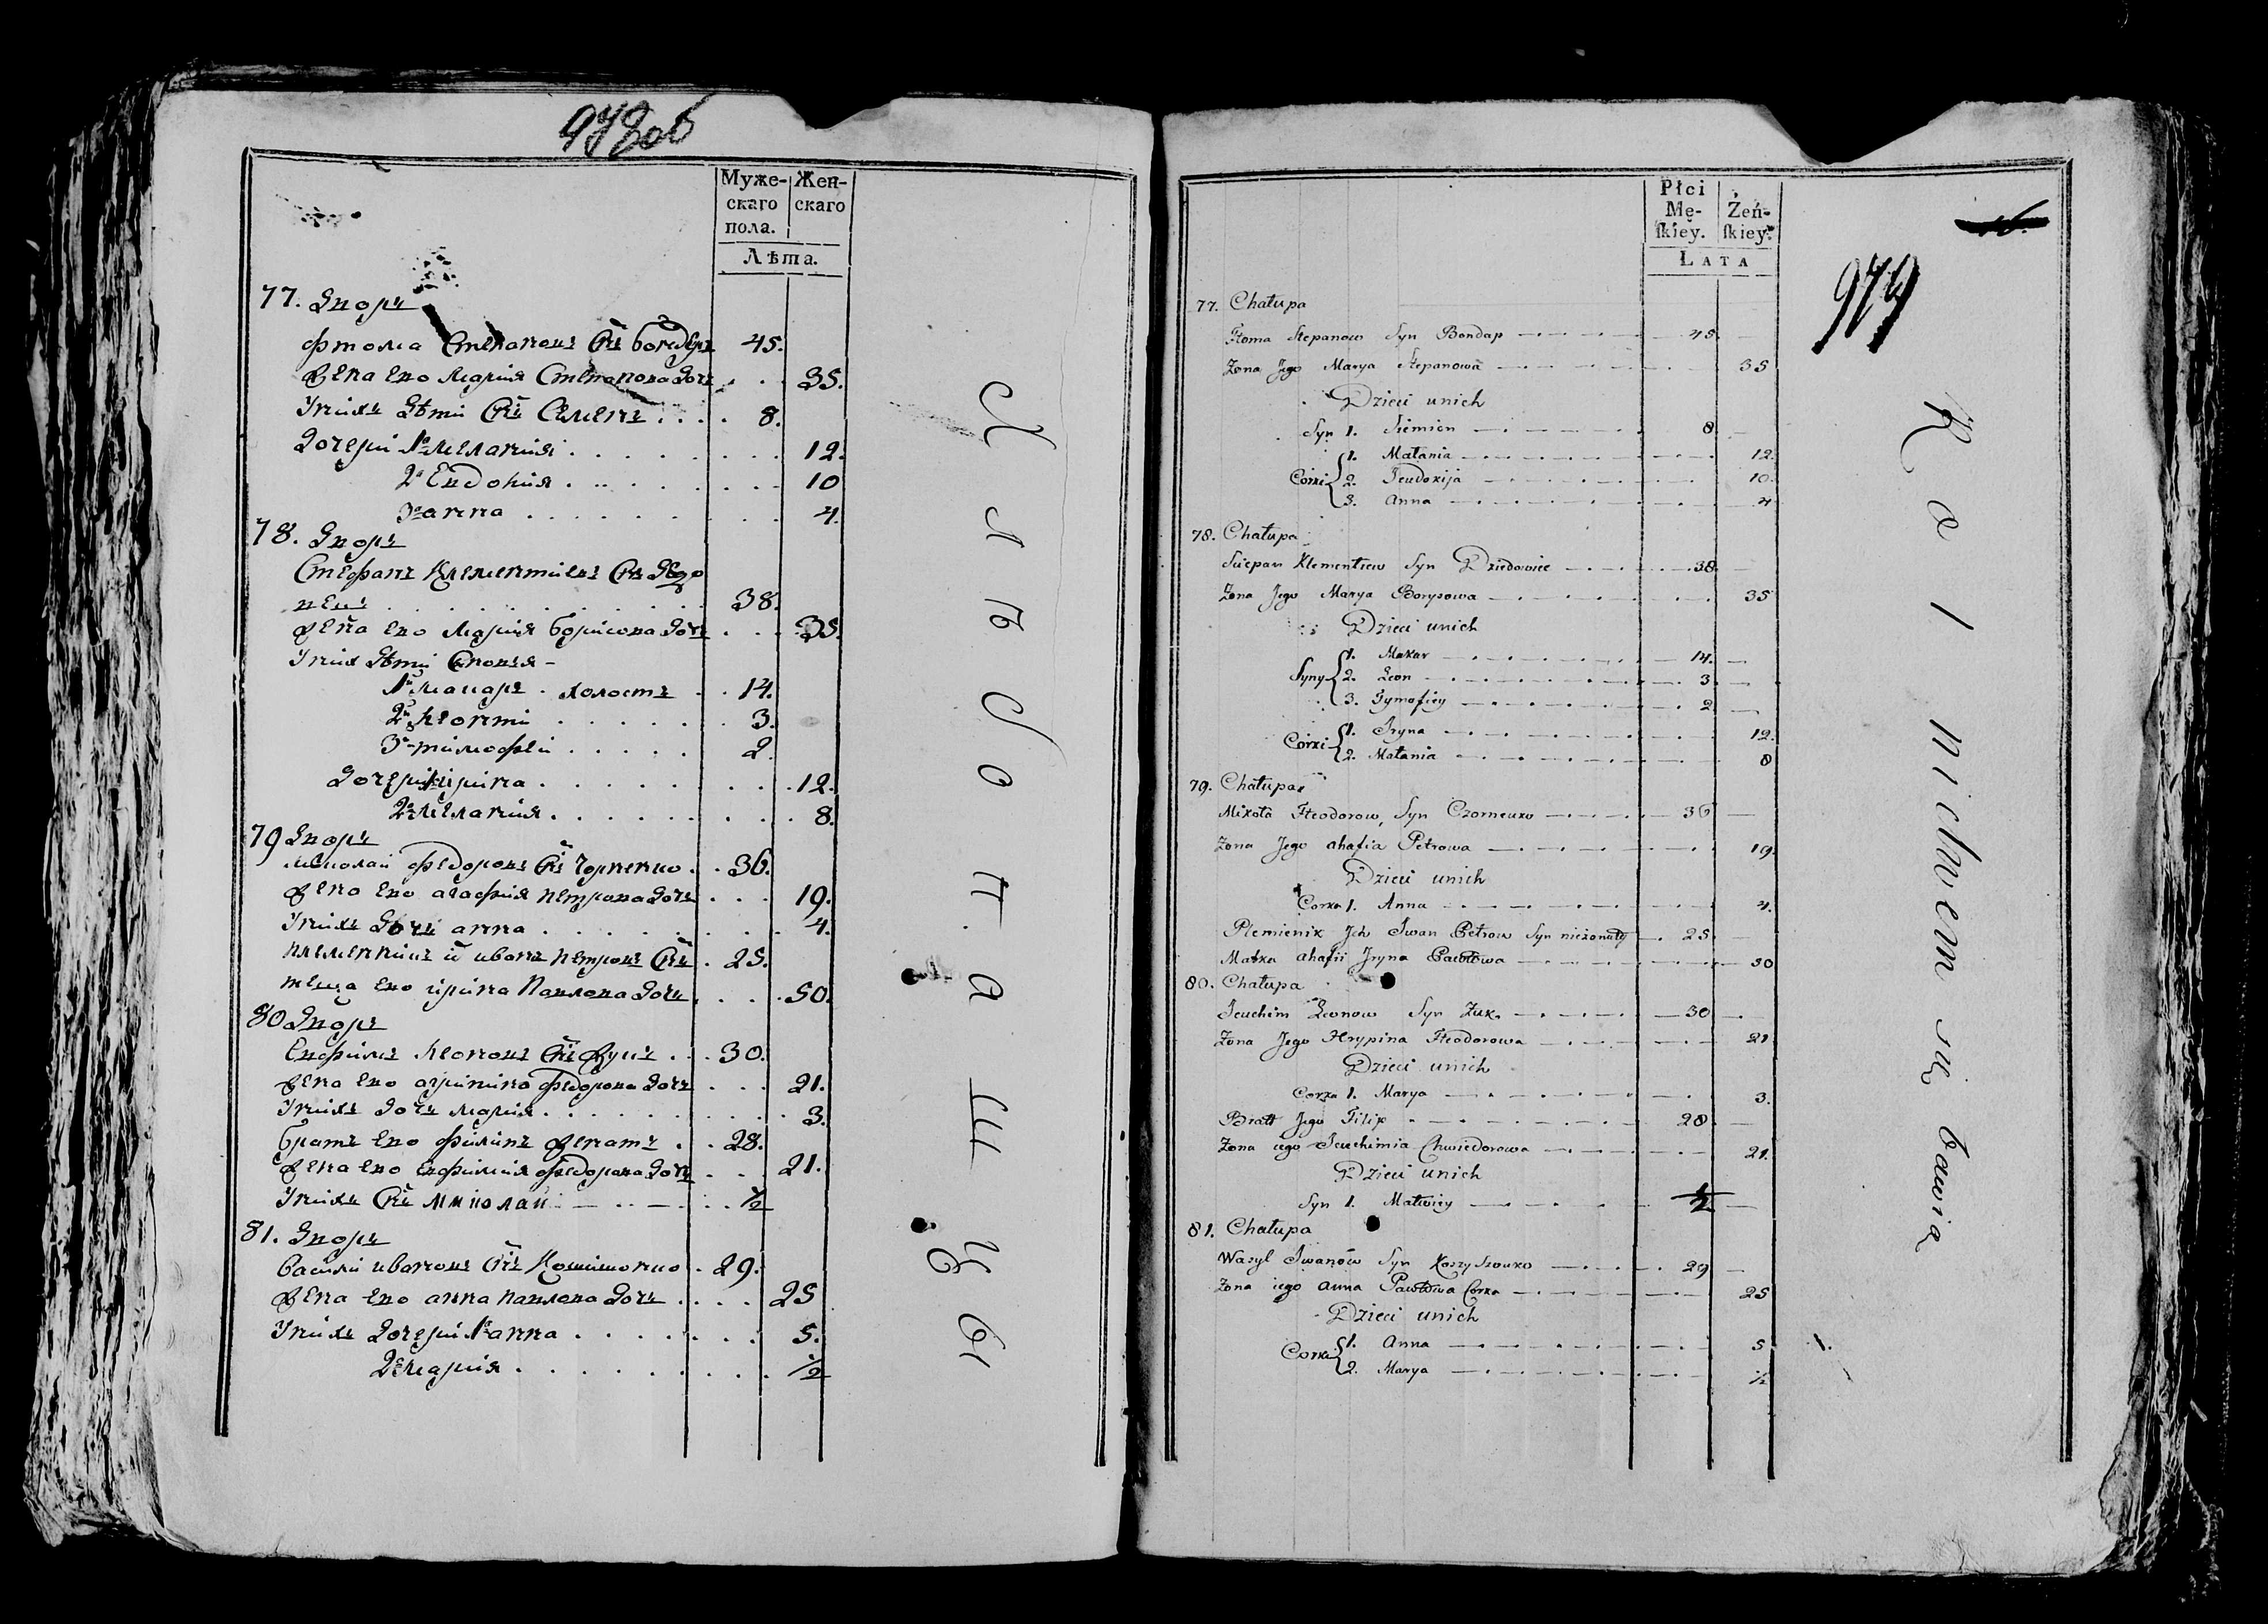 978об
Муже-
скаго
пола.
Жен-
скаго
Лѣта.
77. Дворъ
Фтома Степановъ Сн̃ъ бондаръ 45.
Жена Его Марія Степанова дочь 35.
У нихъ дѣти Сн̃ъ Семенъ 8.
Дочери 1я Меланія 12.
2я Евдокия 10
3я анна 4.
78. Дворъ
Стефанъ Клементиевъ Сн̃ъ Дедо
вецъ 38.
Жена Его Марія борисова дочь 35.
У них дѣти Сновья -
1й макаръ холостъ 14.
2й Леонти 3.
3й тимофеи 2.
Дочери 1я ирина 12.
2я Меланія 8.
79 Дворъ
николаи федоровъ Сн̃ъ Чорненко 36.
Жена Его агафия петрова дочь 19.
У нихъ дочь анна 4.
племенникъ иванъ петровъ Сн̃ъ 25.
теща Его ирина Павлова дочь 50.
80 Дворъ
Ефимъ Леоновъ Сн̃ъ Жукъ 30.
Жена Его агрипина федорова дочь 21.
У нихъ дочь Мария 3.
братъ Его филипъ женатъ 28.
Жена Его Ефимия федорова дочь 21.
У нихъ Сн̃ъ Николаи ½
81. Дворъ
Василі ивановъ Сн̃ъ Кошишонко 29.
Жена Его анна павлова дочь 25
У нихъ дочери 1я анна 5.
2я Мария ½
Płci
Mę-
ſkiey.
Żeń-
ſkiey.
LATA
979
77. Chałupa
Ftoma Stepanow Syn Bondar 45.
Zona Jego Marya Stepanowa 35
Dzieci unich
Syn 1. Siemion 8
Córki 1. Małania 12.
2. Jeudokija 10.
3. Anna 4
78. Chałupa
Sciepan Klementiew Syn Dziedowiec 38.
Zona Jego Marya Borysowa 35
Dzieci unich
Syny 1. Makar 14.
2. Leon 3
3. Tymofiey 2
Córki 1. Jryna 12.
2. Małania 8
79. Chałupa
Mikoła Fteodorow, Syn Czornenko 36
Zona Jego ahafia Petrowa 19.
Dzieci unich
Corka 1. Anna 4.
Plemienik Jch Jwan Petrow Syn nieżonaty 25
Matka ahafii Jryna Pawłowa 50
80. Chałupa
Jeuchim Leonow Syn Zuk 30
Zona Jego Hrypina Fteodorowa 21
Dzieci unich
Corka 1. Marya 3.
Bratt Jego Filip 28
Zona iego Jeuchimia Chwiedorowa 21.
Dzieci unich
Syn 1. Matwiey ½
81. Chałupa
Wasyl Jwanów Syn Koszyszonko 29
Zona iego anna Pawłowa Corka 25
Dzieci unich
Corki 1. Anna 5
2. Marya ½